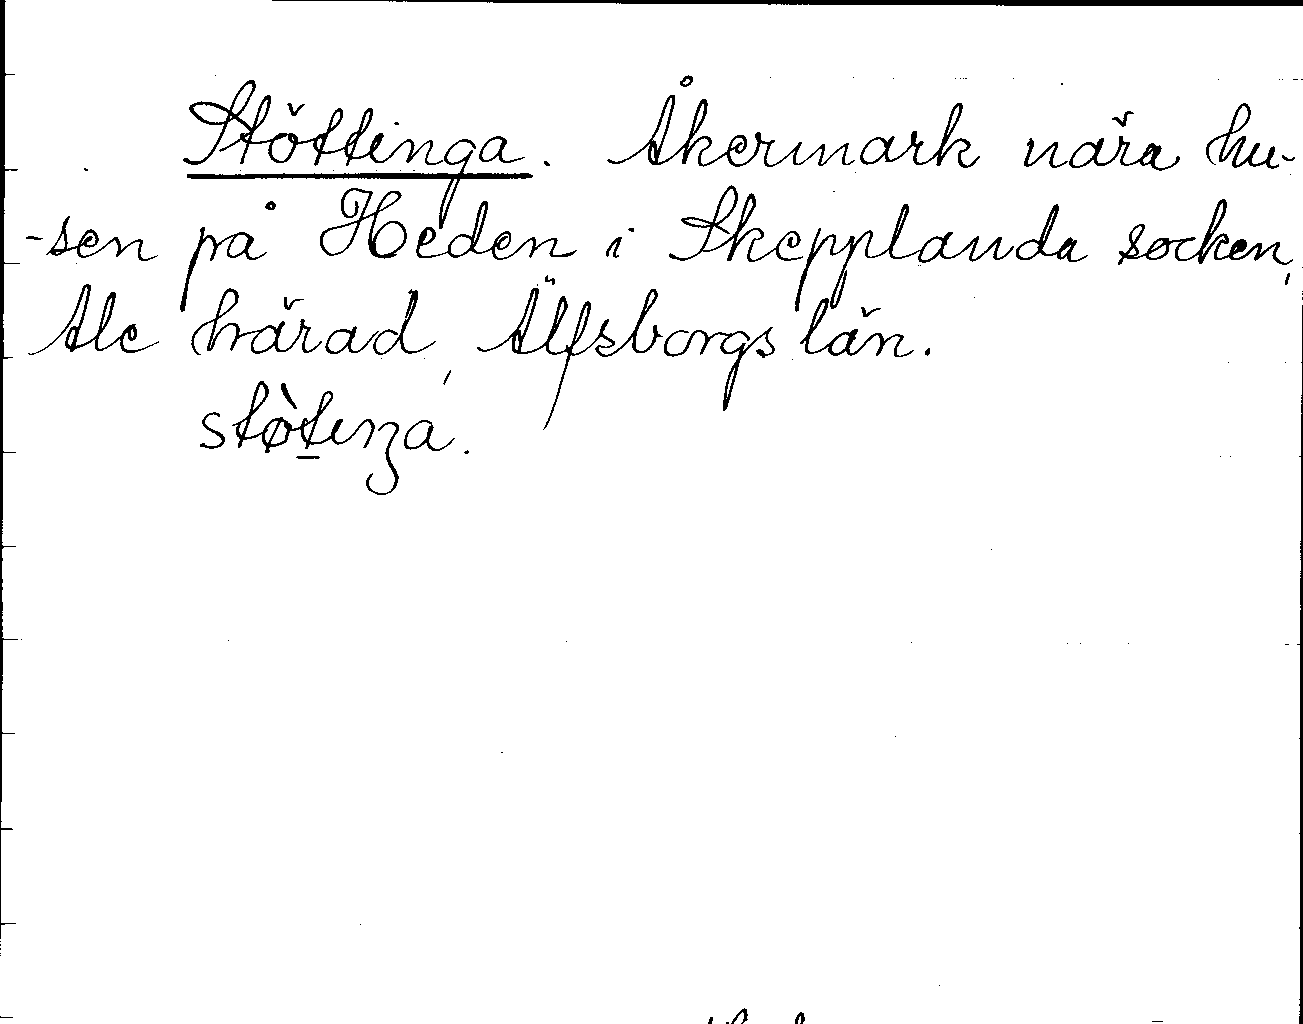 Stöttinga. Åkermark nära hu-
-sen på Heden i Skepplanda socken,
Ale härad, Älfsborgs län.
stø̀t̲eŋa.